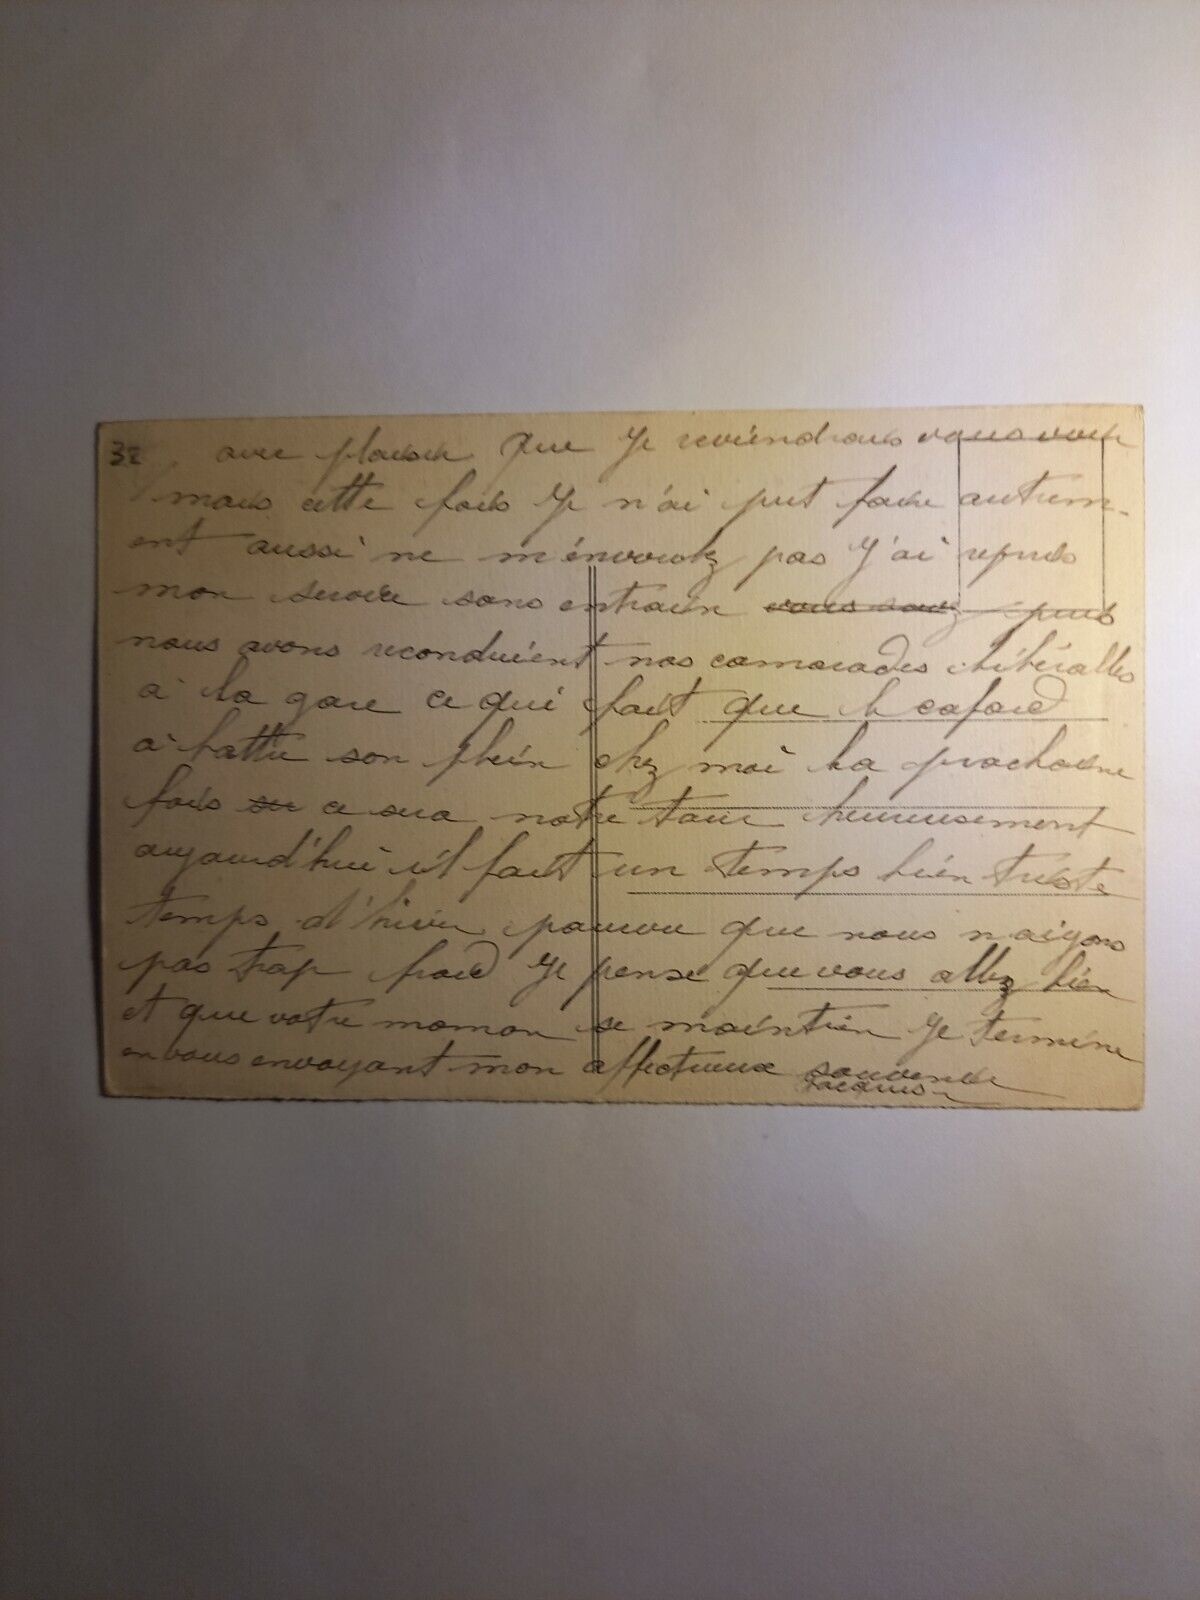 32 avec plaisir que Je reviendrais vous voir
mais cette fois Je n'ai put faire autrem-
ent aussi ne m'en voulez pas J'ai repris
mon service sans entrain vous savez puis
nous avons reconduient nos camarades libéralles
à la gare ce qui fait que le cafard
a battu son plein chez moi la prochaine
fois se ce sera notre tour heureusement
aujourd'hui il fait un temps bien triste
temps d'hiver pourvu que nous n'aiyons
pas trop froid Je pense que vous allez bien
et que votre maman se maintien Je termine
en vous envoyant mon affectueux souvenir
Jacques